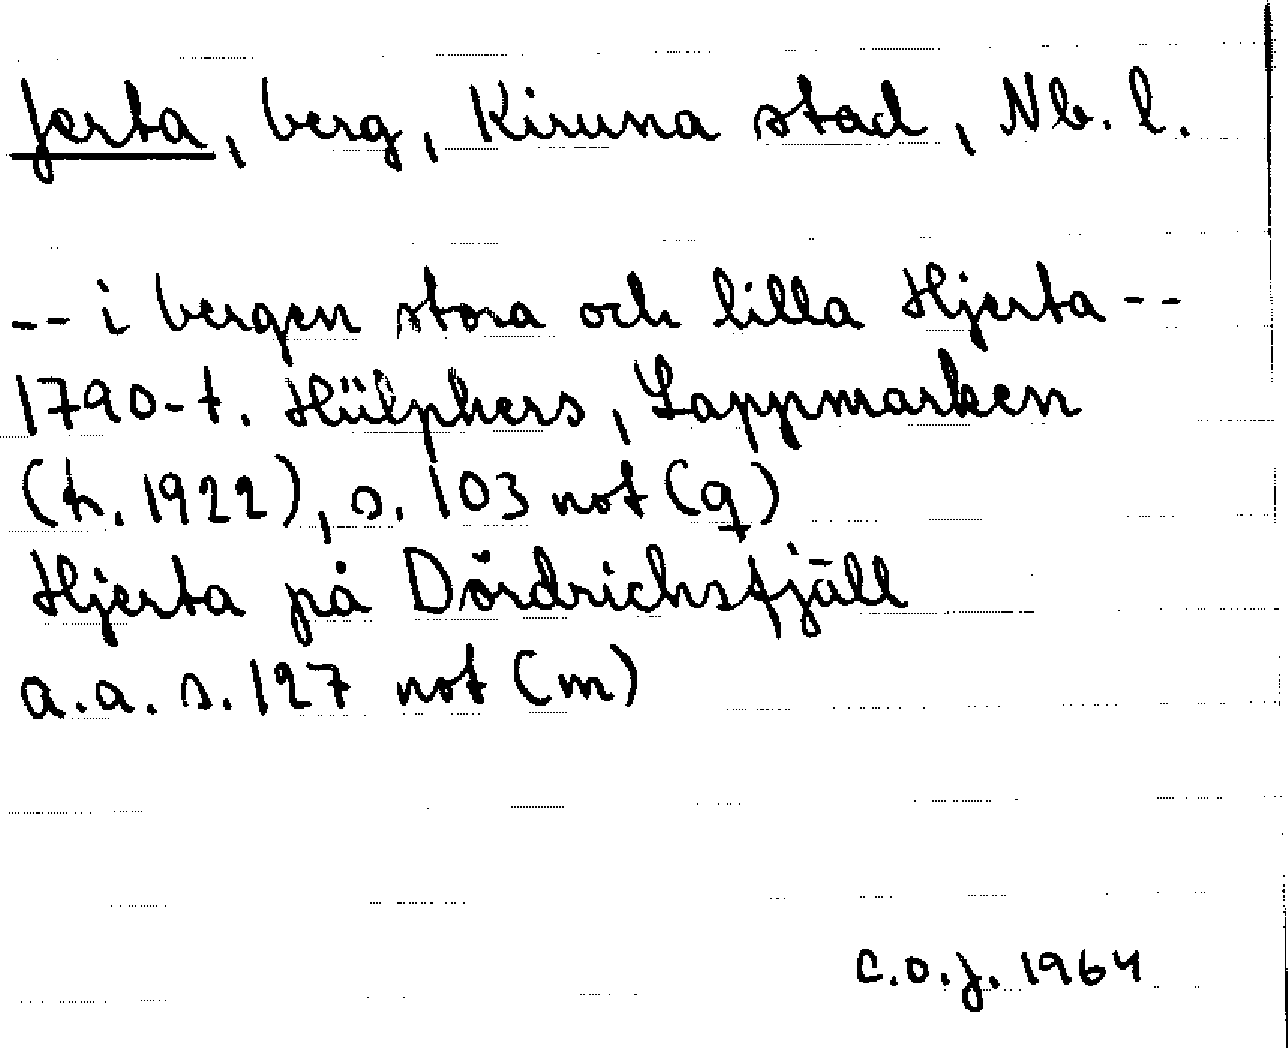 Jerta, berg, Kiruna stad, Nb. l.
-- i bergen stora och lilla Hjerta --
1790-t. Hülphers, Lappmarken
(h. 1922), s. 103 not (q)
Hjerta på Dördrichsfjäll
a.a. s. 127 not (m)
C.O.J. 1964